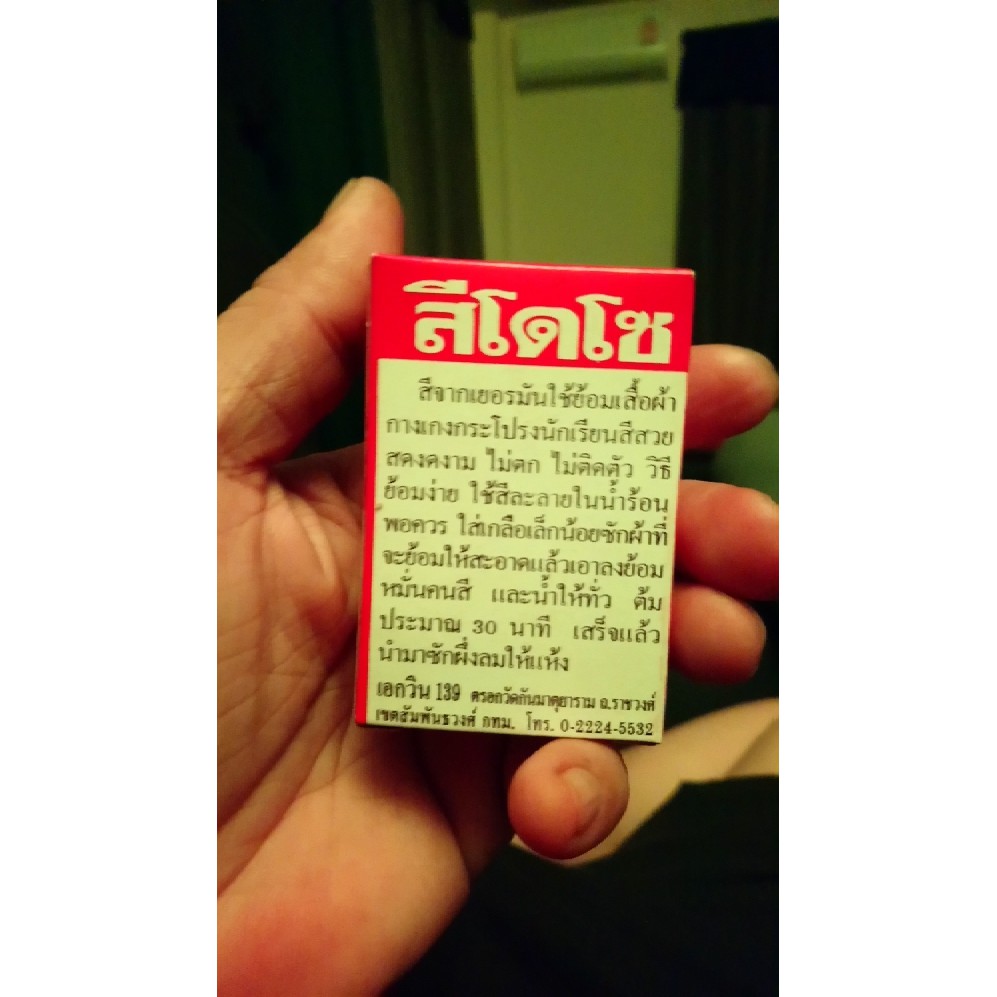 สีโดโซ
สีจากเยอรมันใช้ย้อมเสื้อผ้า
กางเกงกระโปรงนักเรียนสีสวย
สดงดงาม ไม่ตก ไม่ติดตัว วิธี
ย้อมง่าย ใช้สีละลายในน้ำร้อน
พอควร ใส่เกลือเล็กน้อยซักผ้าที่
จะย้อมให้สะอาดแล้วเอาลงย้อม
หมั่นคนสี และน้ำให้ทั่ว ต้ม
ประมาณ 30 นาที เสร็จแล้ว
นำมาซักผึ่งลมให้แห้ง
เอกวิน 139 ตรอกวัดกันมาตุยาราม ถ.ราชวงศ์
เขตสัมพันธวงศ์ กทม. โทร. 0-2224-5532